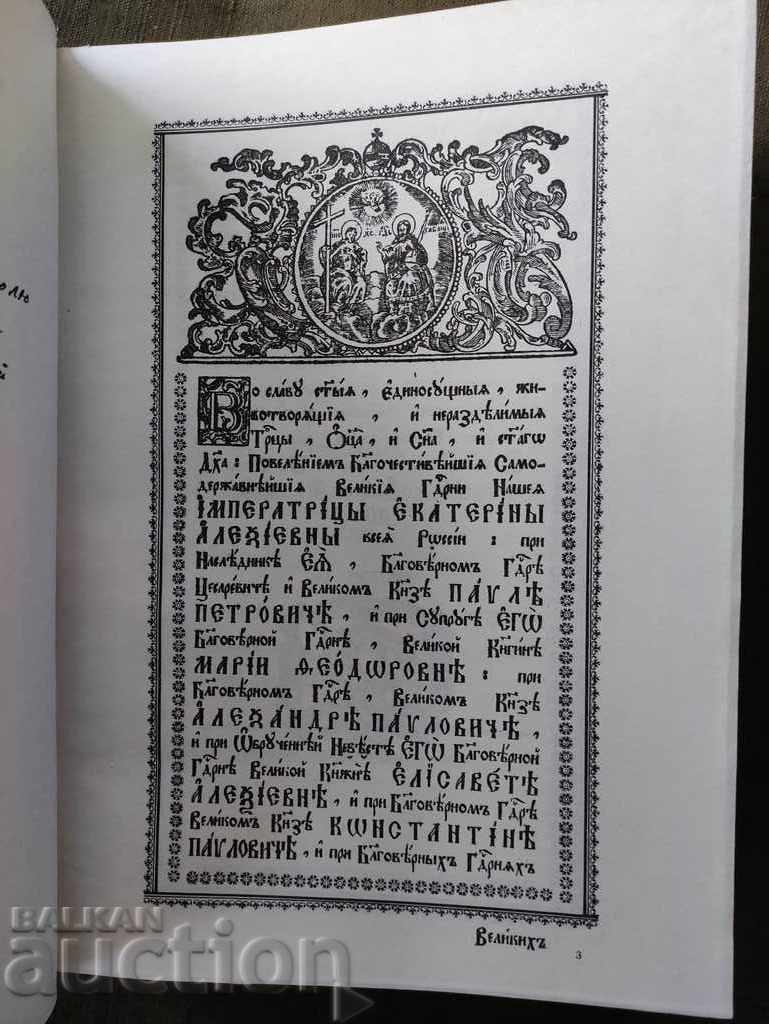 олю
й
Во славу ст҃ыѧ, Єдиносꙋщныѧ, жи-
вотворѧщїѧ, и нераздѣлимыѧ
Трⷪ҇цы, Ѻц҃а, и Сн҃а, и ст҃агѡ
Дх҃а: Повелѣнїемъ Бл҃гочестивѣйшїѧ Само-
державнѣйшїѧ Великїѧ Гдⷭ҇рни Нашеѧ
ІМПЕРАТРІЦЫ ЄКАТЕРІНЫ
АЛЕѮІЕВНЫ всеѧ Рѡссїи: при
Наслѣдникѣ ЄѦ̀, Бл҃говѣрномъ Гдⷭ҇рѣ
Цесаревичѣ и Великомъ Кн҃зѣ ПАѴЛѢ
ПЕТРО́ВИЧѢ, и при Сꙋпрꙋгѣ ЄГѠ̀
Бл҃говѣрной Гдⷭ҇рнѣ, Великой Кнѧгинѣ
МАРІИ ѲЕО́ДѠРОВНѢ: при
Бл҃говѣрномъ Гдⷭ҇рѣ, Великомъ Кн҃зѣ
АЛЕѮА́НДРѢ ПАѴЛОВИЧѢ,
и при Ѡбрꙋченнѣй Невѣстѣ ЄГѠ̀ Бл҃говѣрной
Гдⷭ҇рнѣ Великой Кнѧжнѣ ЄЛІСАВЕ́ТѢ
АЛЕѮІЕВНѢ, и при Бл҃говѣрномъ Гдⷭ҇рѣ
Великомъ Кн҃зѣ КѠНСТАНТІНѢ
ПАѴЛОВИЧѢ, и при Бл҃говѣрныхъ Гдⷭ҇рнѧхъ
Вели́кихъ
3
BALKAN
auction